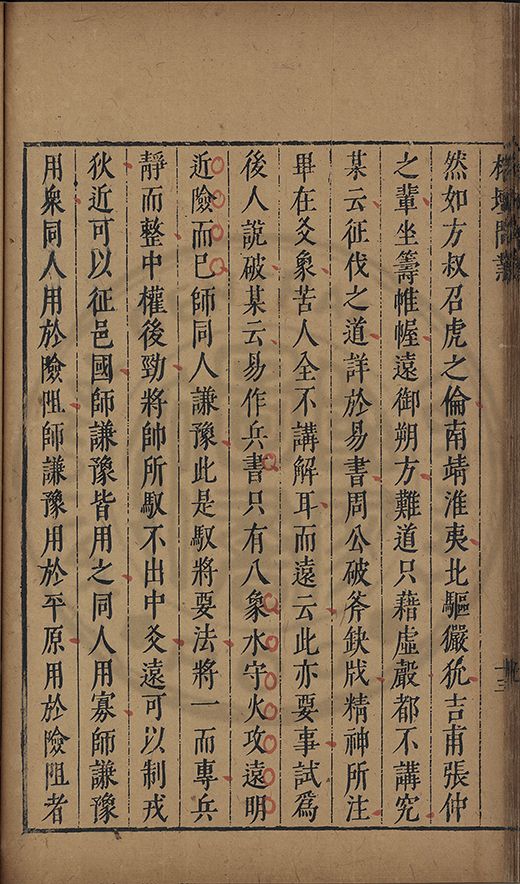 然如方叔召虎之倫南靖淮夷北驅玁狁吉甫張仲
之輩坐籌帷幄遠御朔方難道只藉虛嚴都不講究
某云征伐之道詳於易書周公破斧缺戕精神所注
畢在爻象苦人全不講解耳而遠云此亦要事試為
後人說破某云易作兵書只有八象水守火攻遠明
近險而已師同人謙豫此是馭將要法將一而專兵
靜而整中權後勁將帥所馭不出中爻遠可以制戎
狄近可以征邑國師謙豫皆用之同人用寡師謙豫
用衆同人用於險阻師謙豫用於平原用於險阻者